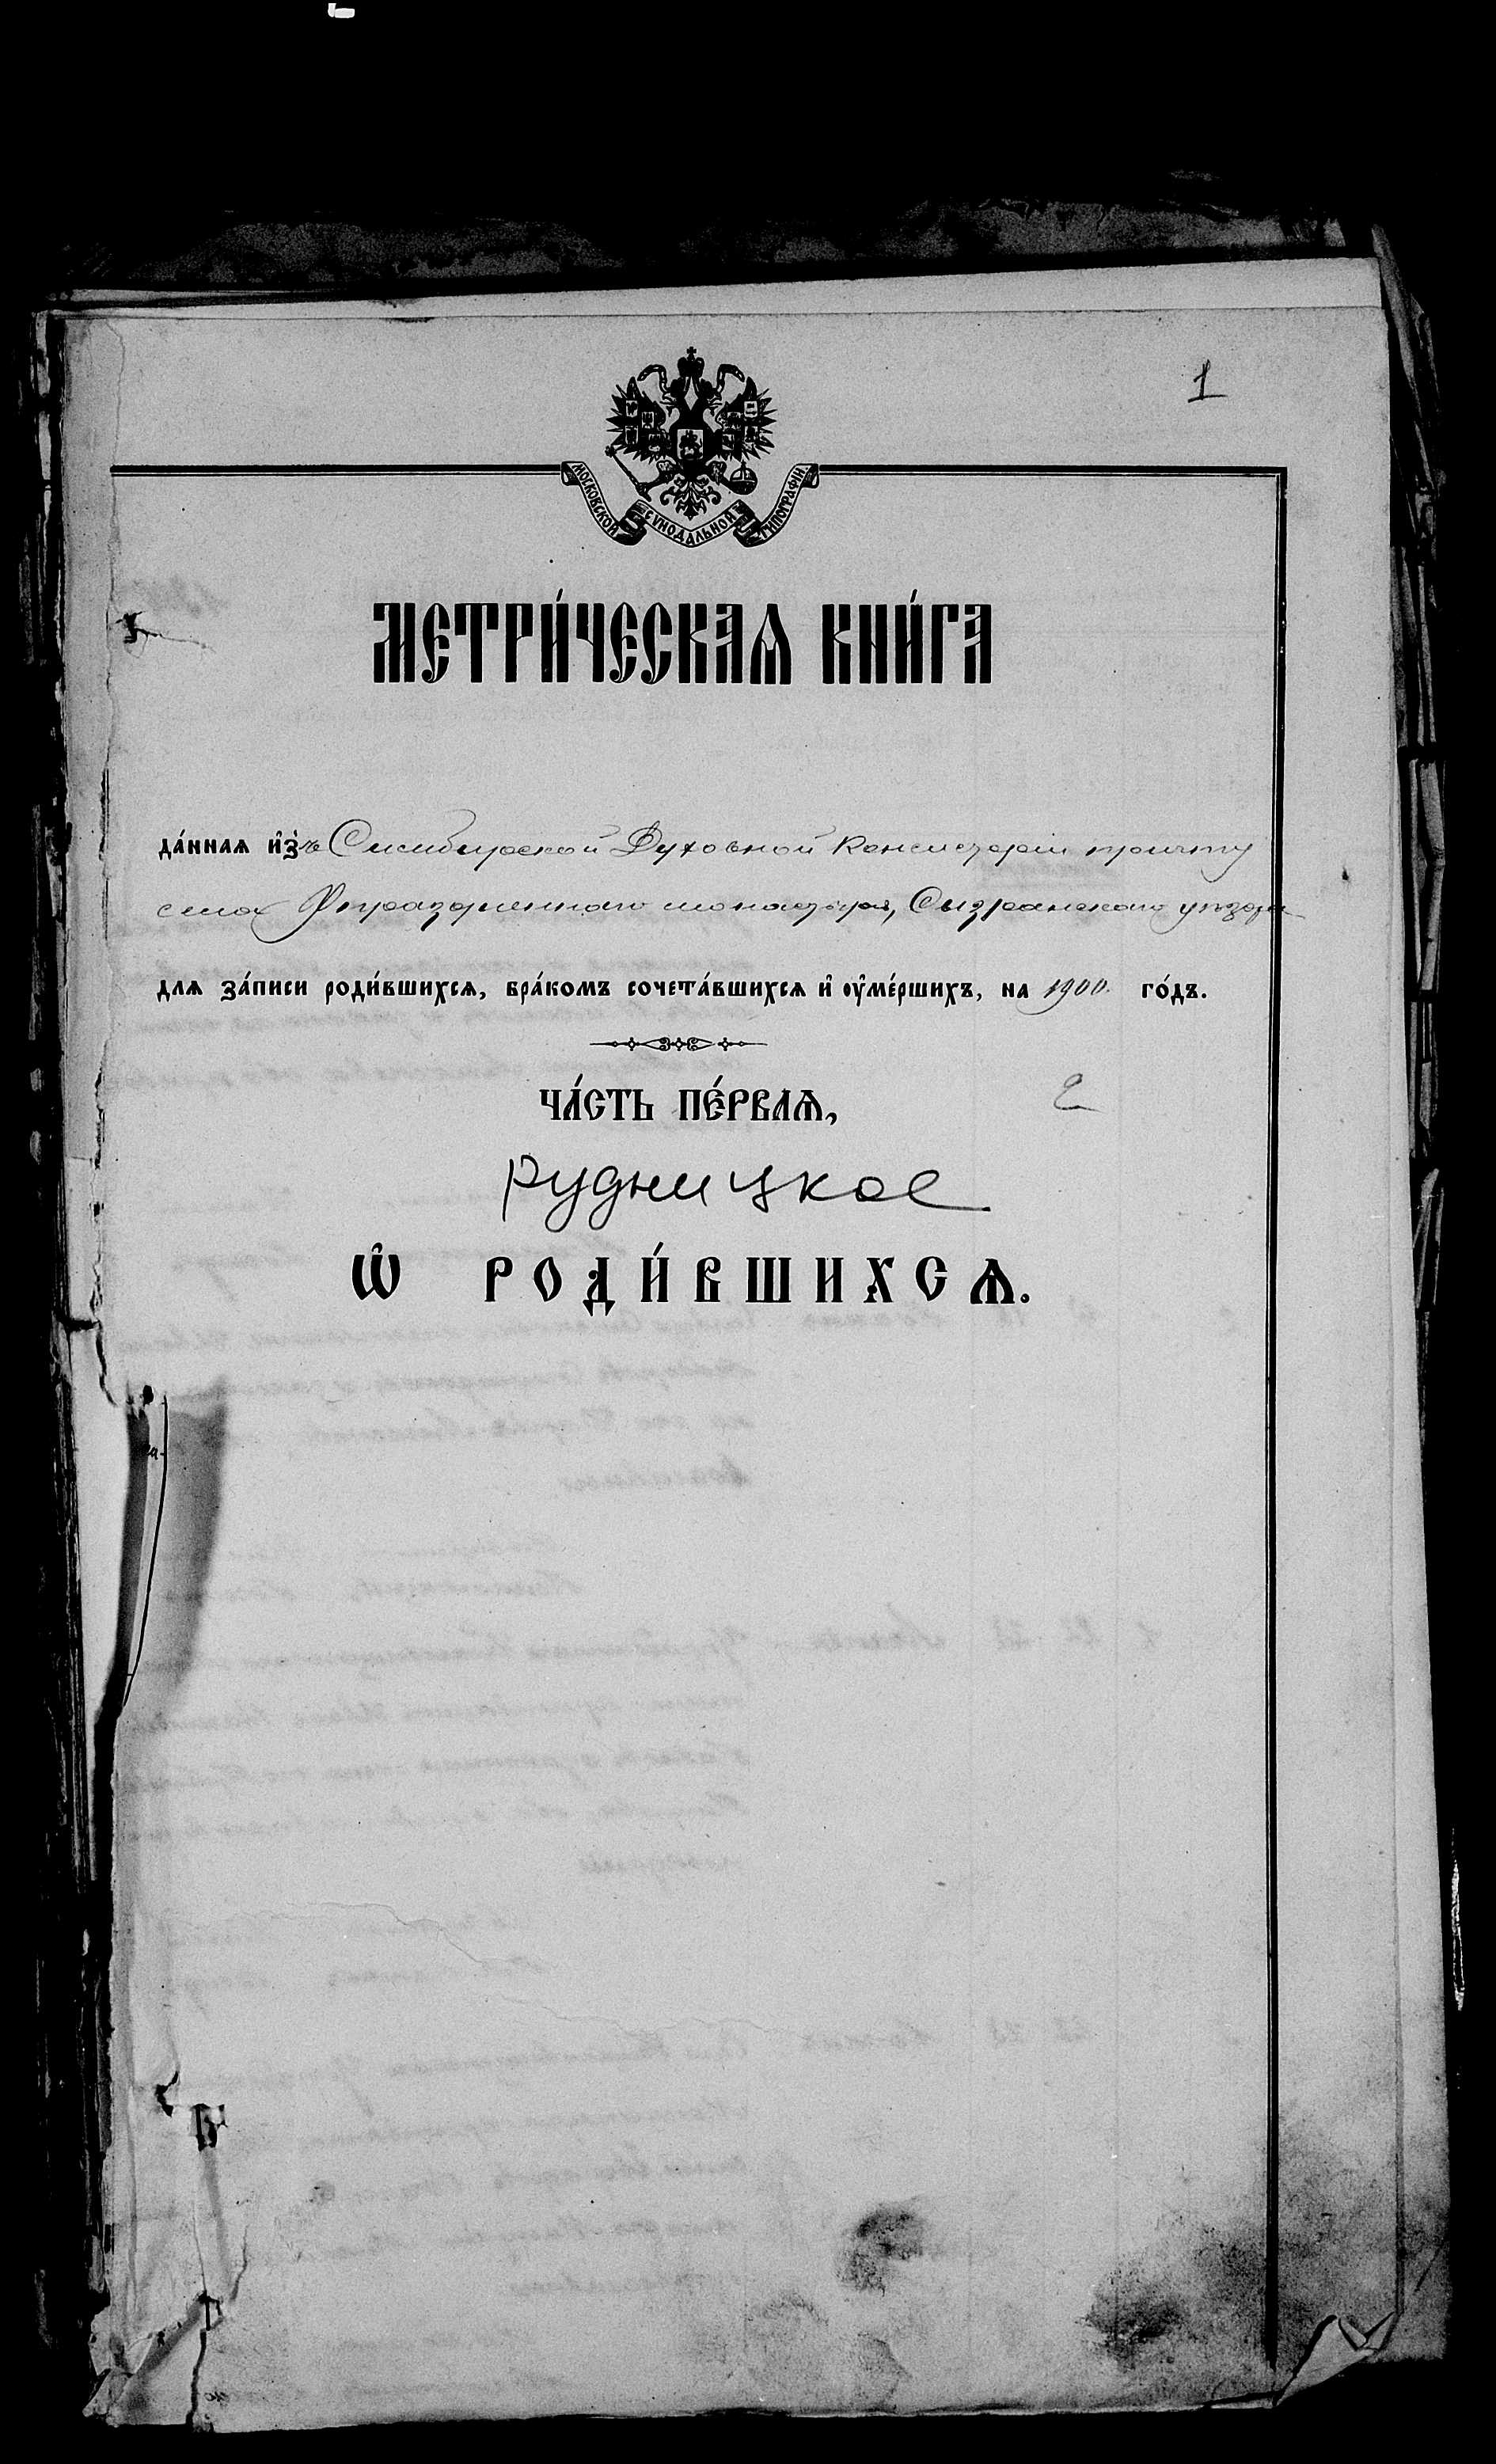 1
МОСКОВСКОЙ СѴНОДАЛЬНОЙ ТИПОГРАФІИ.
МЕТРИ́ЧЕСКАѦ КНИ́ГА
да́ннаѧ и҆зъ Симбирской Духовной Консисторіи причту
села Упраздненнаго монастыря, Сызранскаго уѣзда
для за́писи роди́вшихсѧ, бра́комъ сочета́вшихсѧ и҆ оу҆ме́ршихъ, на 1900. го́дъ.
ЧА́СТЬ ПЕ́РВАѦ,
рудницкое
Ѡ҆ РОДИ́ВШИХСѦ.